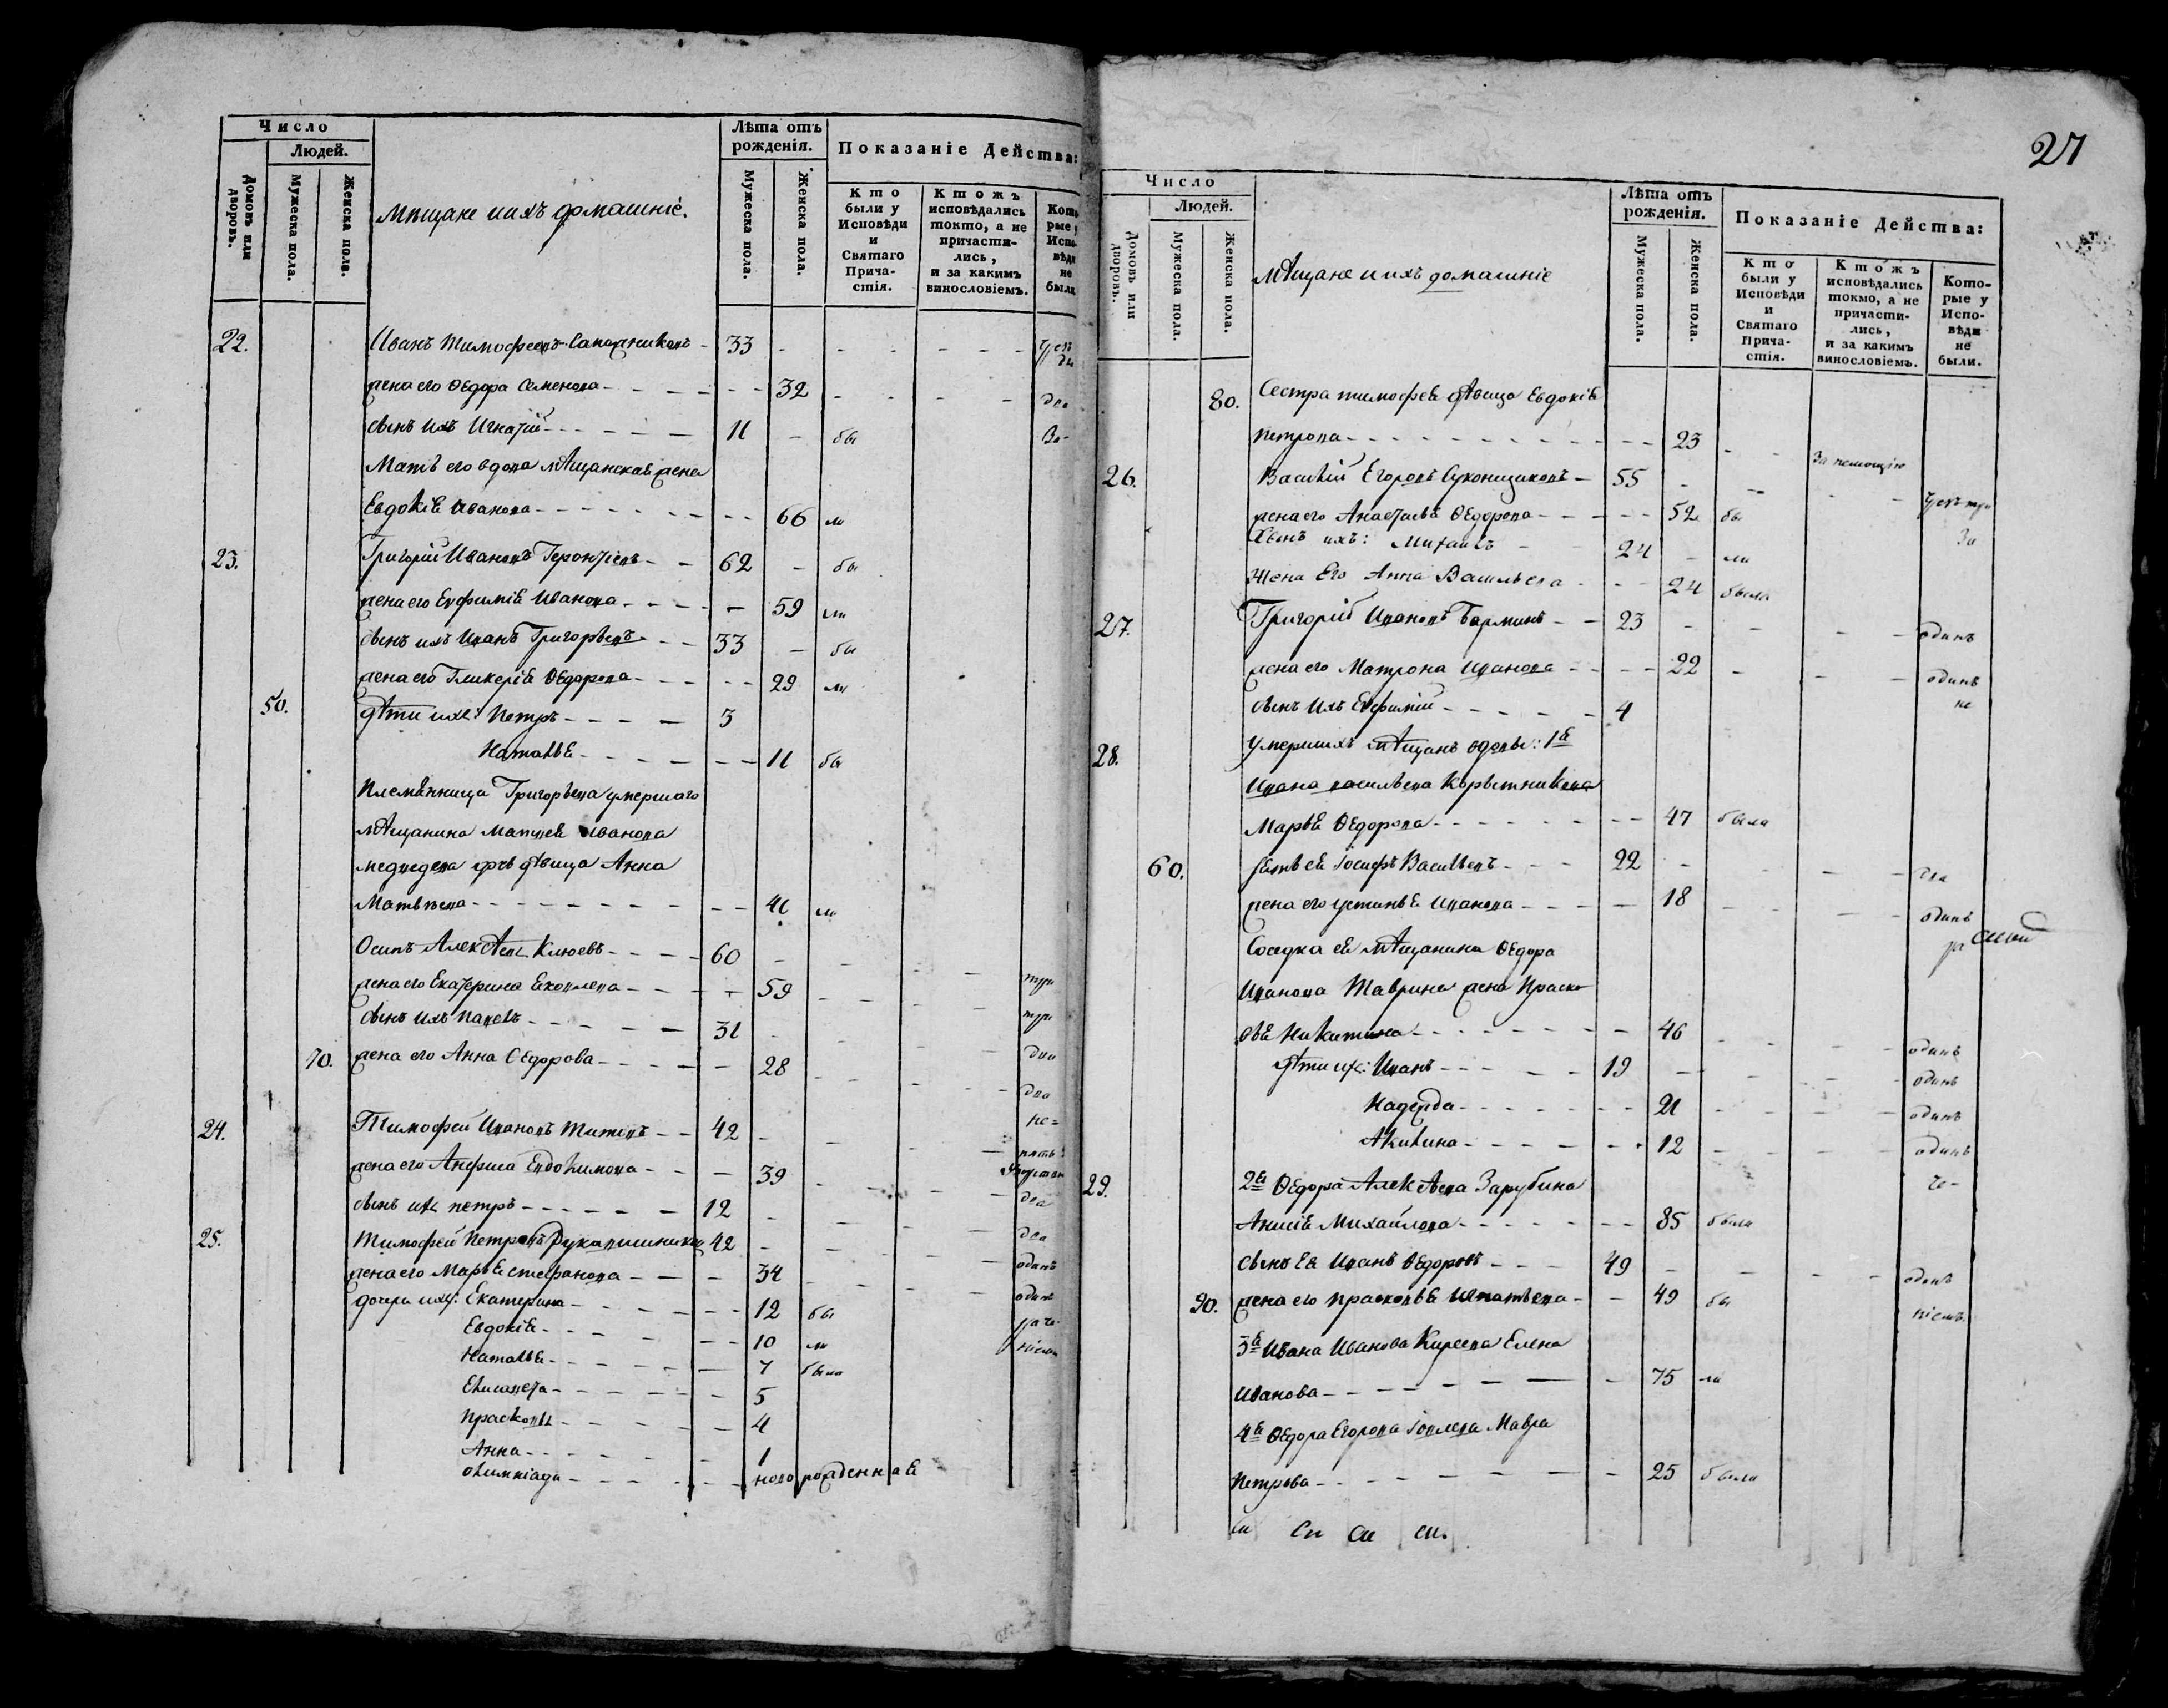 Число
Людей.
Домовъ или дворовъ.
Мужеска пола.
Женска пола.
Мѣщане и ихъ домашніе.
Лѣта отъ рожденія.
Мужеска пола.
Женска пола.
Показаніе Действа:
Кто были у Исповѣди и Святаго Прича-стія.
Ктожъ исповѣдались токто, а не причасти-лись, и за какимъ винословіемъ.
22. Иванъ Тимофеевъ Сапожниковъ - 33
жена его Ѳедора Семенова - 32 два
сынъ ихъ Игнатій - 11 бы
Мать его вдова мѣщанская жена
Евдокія Иванова - 66 ли
23. Григорій Ивановъ Геронтіевъ - 62 бы
жена его Евфимія Иванова - 59 ли
сынъ ихъ Иванъ Григорьевъ - 33 бы
жена его Гликерія Ѳедорова - 29 ли
50. дѣти ихъ: Петръ - 3
Наталья - 11 бы
Племянница Григорьева умершаго
мѣщанина Матвея Иванова
медведева дѣвица Анна
Матвѣева - 41 ли
Осипъ Алексѣевъ Клюевъ - 60 три
жена его Екатерина Яковлева - 59 три
сынъ ихъ Павелъ - 31 два
70. жена его Анна Ѳедорова - 28 два
24. Тимофей Ивановъ Титовъ - 42 пять
жена его Анфиса Евдокимова - 39 два
сынъ их петръ - 12 два
25. Тимофей Петровъ Рукавишников 42 одинъ
жена его Марья стефанова - 34 один
дочери ихъ: Екатерина - 12 бы
Евдокія - 10 ли
Наталья - 7 были
Елисавета - 5
Прасковья - 4
Анна - 1
Олимпіада - новорожденная
27
Число
Людей.
Домовъ или дворовъ.
Мужеска пола.
Женска пола.
Мѣщане и ихъ домашніе
Лѣта отъ рожденія.
Мужеска пола.
Женска пола.
Показаніе Действа:
Кто были у Исповѣди и Святаго Прича-стія.
Ктожъ исповѣдались токмо, а не причасти-лись, и за какимъ винословіемъ.
Кото-рые у Испо-вѣди не были.
80. Сестра тимофея дѣвица Евдокія
петрова - 23 За немощію
26. Василій Егоровъ Суконщиковъ - 55
жена его Анастасья Ѳедорова - 52 бы За
Сынъ ихъ: Михаилъ - 24 ли
Жена Его Анна Васильева - 24 была
27. Григорій Ивановъ Барминъ - 23 одинъ
жена его Матрона Иванова - 22 одинъ
сынъ ихъ Евфимій - 4 не
28. Умершихъ мѣщанъ вдовы: 1я
Ивана васильева Корытникова
Марья Ѳедорова - 47 была
60. зять ея Іосифъ Васильевъ - 22 два
жена его устинья Иванова - 18 одинъ
Соседка ея мѣщанина Ѳедора
Иванова Таврина жена Праско
вья Никитина - 46 одинъ
дѣти их: Иванъ - 19 одинъ
Надежда - 21 одинъ
Акилина - 12 одинъ
29. 2я Ѳедора Алексѣева Зарубина
Анисія Михайлова - 85 были
сынъ Ея Иванъ Ѳедоровъ - 49 одинъ
90. жена его прасковья Игнатьева - 49 бы
3я Ивана Иванова Киреева Елена
Иванова - 75 ли
4я Ѳедора Егорова Іовлева Мавра
Петрова - 25 были